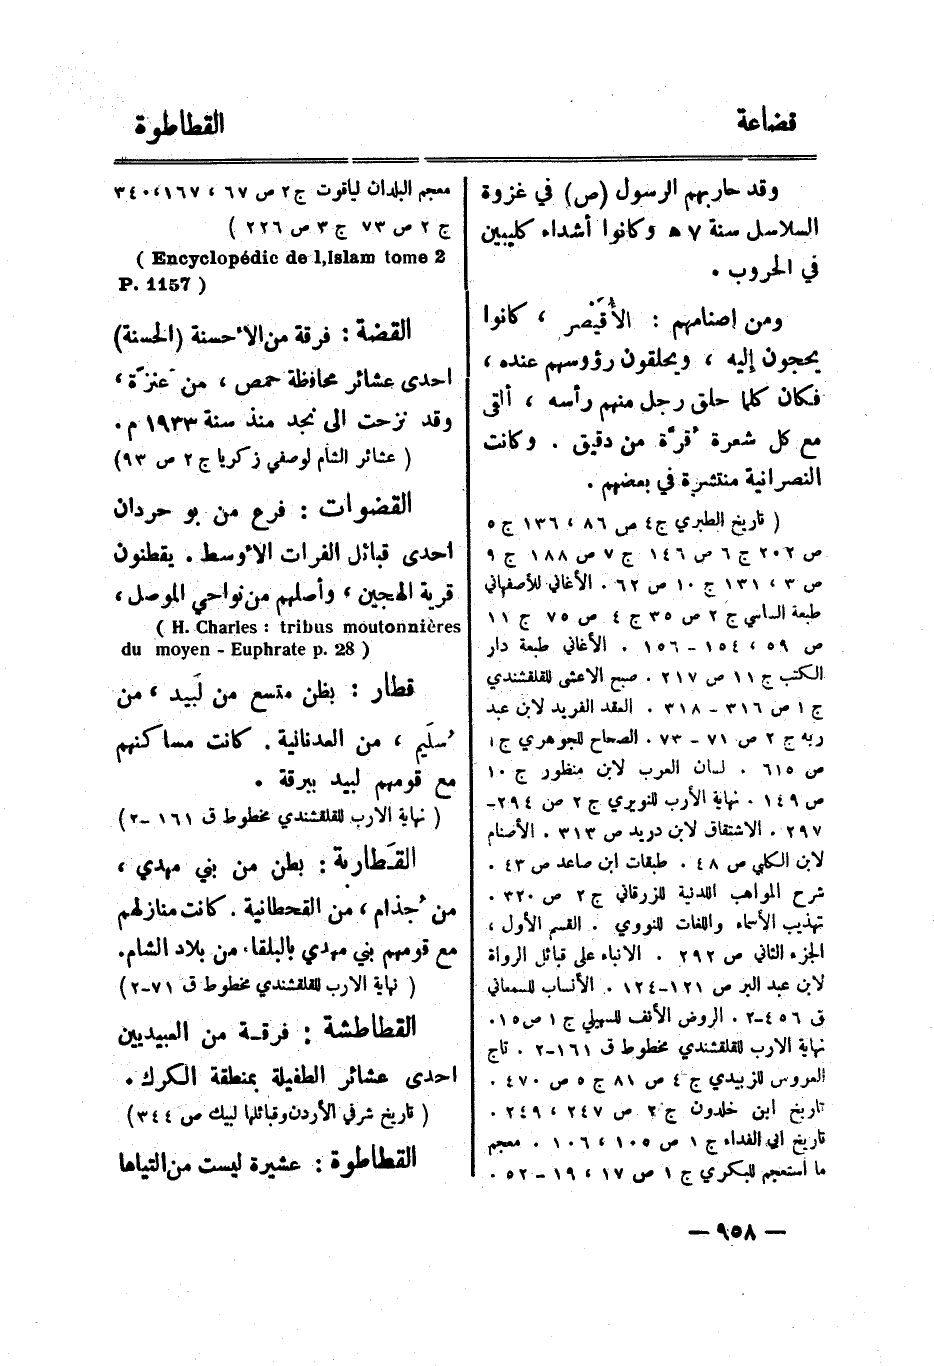 قضاعة
القطاطوة
وقد حاربهم الرسول (ص) في غزوة
السلاسل سنة ٧ هـ وكانوا أشداء كليبين
في الحروب .
ومن اصنامهم : الأُقَيْصر ، كانوا
يحجون إليه ، ويحلقون رؤوسهم عنده ،
فكان كلما حلق رجل منهم رأسه ، ألقى
مع كل شعرة قُرّة من دقيق . وكانت
النصرانية منتشرة في بعضهم .
( تاريخ الطبري ج٤ ص ٨٦ ، ١٣٦ ج ٥
ص ٢٠٢ ج ٦ ص ١٤٦ ج ٧ ص ١٨٨ ج ٩
ص ٣ ، ١٣١ ج ١٠ ص ٦٢ . الأغاني للأصفهاني
طبعة الساسي ج ٢ ص ٣٥ ج ٤ ص ٧٥ ج ١١
ص ٥٩ ، ١٥٤ - ١٥٦ . الأغاني طبعة دار
الكتب ج ١١ ص ٢١٧ . صبح الاعشى للقلقشندي
ج ١ ص ٣١٦ - ٣١٨ . العقد الفريد لابن عبد
ربه ج ٢ ص ٧١ - ٧٣ . الصحاح للجوهري ج ١
ص ٦١٥ . لسان العرب لابن منظور ج ١٠
ص ١٤٩ . نهاية الأرب للنويري ج ٢ ص ٢٩٤-
٢٩٧ . الاشتقاق لابن دريد ص ٣١٣ . الأصنام
لابن الكلبي ص ٤٨ . طبقات ابن صاعد ص ٤٣ .
شرح المواهب اللدنية للزرقاني ج ٢ ص ٣٢٠ .
تهذيب الأسماء واللغات للنووي . القسم الأول ،
الجزء الثاني ص ٢٩٢ . الانباه على قبائل الرواة
لابن عبد البر ص ١٢١-١٢٤ . الأنساب للسمعاني
ق ٤٥٦-٢ . الروض الأنف للسهيلي ج ١ ص١٥ .
نهاية الارب للقلقشندي مخطوط ق ١٦١-٢ . تاج
العروس للزبيدي ج ٤ ص ٨١ ج ٥ ص ٤٧٠ .
تاريخ ابن خلدون ج ٢ ص ٢٤٧ ، ٢٤٩ .
تاريخ ابي الفداء ج ١ ص ١٠٥ ، ١٠٦ . معجم
ما استعجم للبكري ج ١ ص ١٧ ، ١٩ - ٥٢ .
معجم البلدان لياقوت ج٢ ص ٦٧ ، ١٦٧ ، ٣٤٠
ج ٢ ص ٧٣ ج ٣ ص ٢٢٦ )
( Encyclopédic de l,Islam tome 2
P. 1157 )
القضة : فرقة من الاحسنة (الحسنة)
احدى عشائر محافظة حمص ، من عنزة ،
وقد نزحت الى نجد منذ سنة ١٩٣٣ م .
( عشائر الشام لوصفي زكريا ج ٢ ص ٩٣)
القضوات : فرع من بو حردان
احدى قبائل الفرات الاوسط . يقطنون
قرية الهجين ، وأصلهم من نواحي الموصل ،
( H. Charles : tribus moutonnières
du moyen - Euphrate p. 28 )
قطار : بطن متسع من لَبيد ، من
سُلَيم ، من العدنانية . كانت مساكنهم
مع قومهم لبيد ببرقة .
( نهاية الارب للقلقشندي مخطوط ق ١٦١ -٢)
القَطاربة : بطن من بني مهدي ،
من جُذام ، من القحطانية . كانت منازلهم
مع قومهم بني مهدي بالبلقاء من بلاد الشام .
( نهاية الارب للقلقشندي مخطوط ق ٧١-٢)
القطاطشة : فرقة من العبيديين
احدى عشائر الطفيلة بمنطقة الكرك .
( تاريخ شرقي الأردن وقبائلها لبيك ص ٣٤٤)
القطاطوة : عشيرة ليست من التياها
— ٩٥٨ —